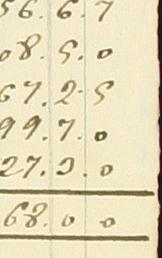 56. 6. 7
08. 5. 0
67. 2. 5
99. 7. 0
27. 3. 0
68. 0 0